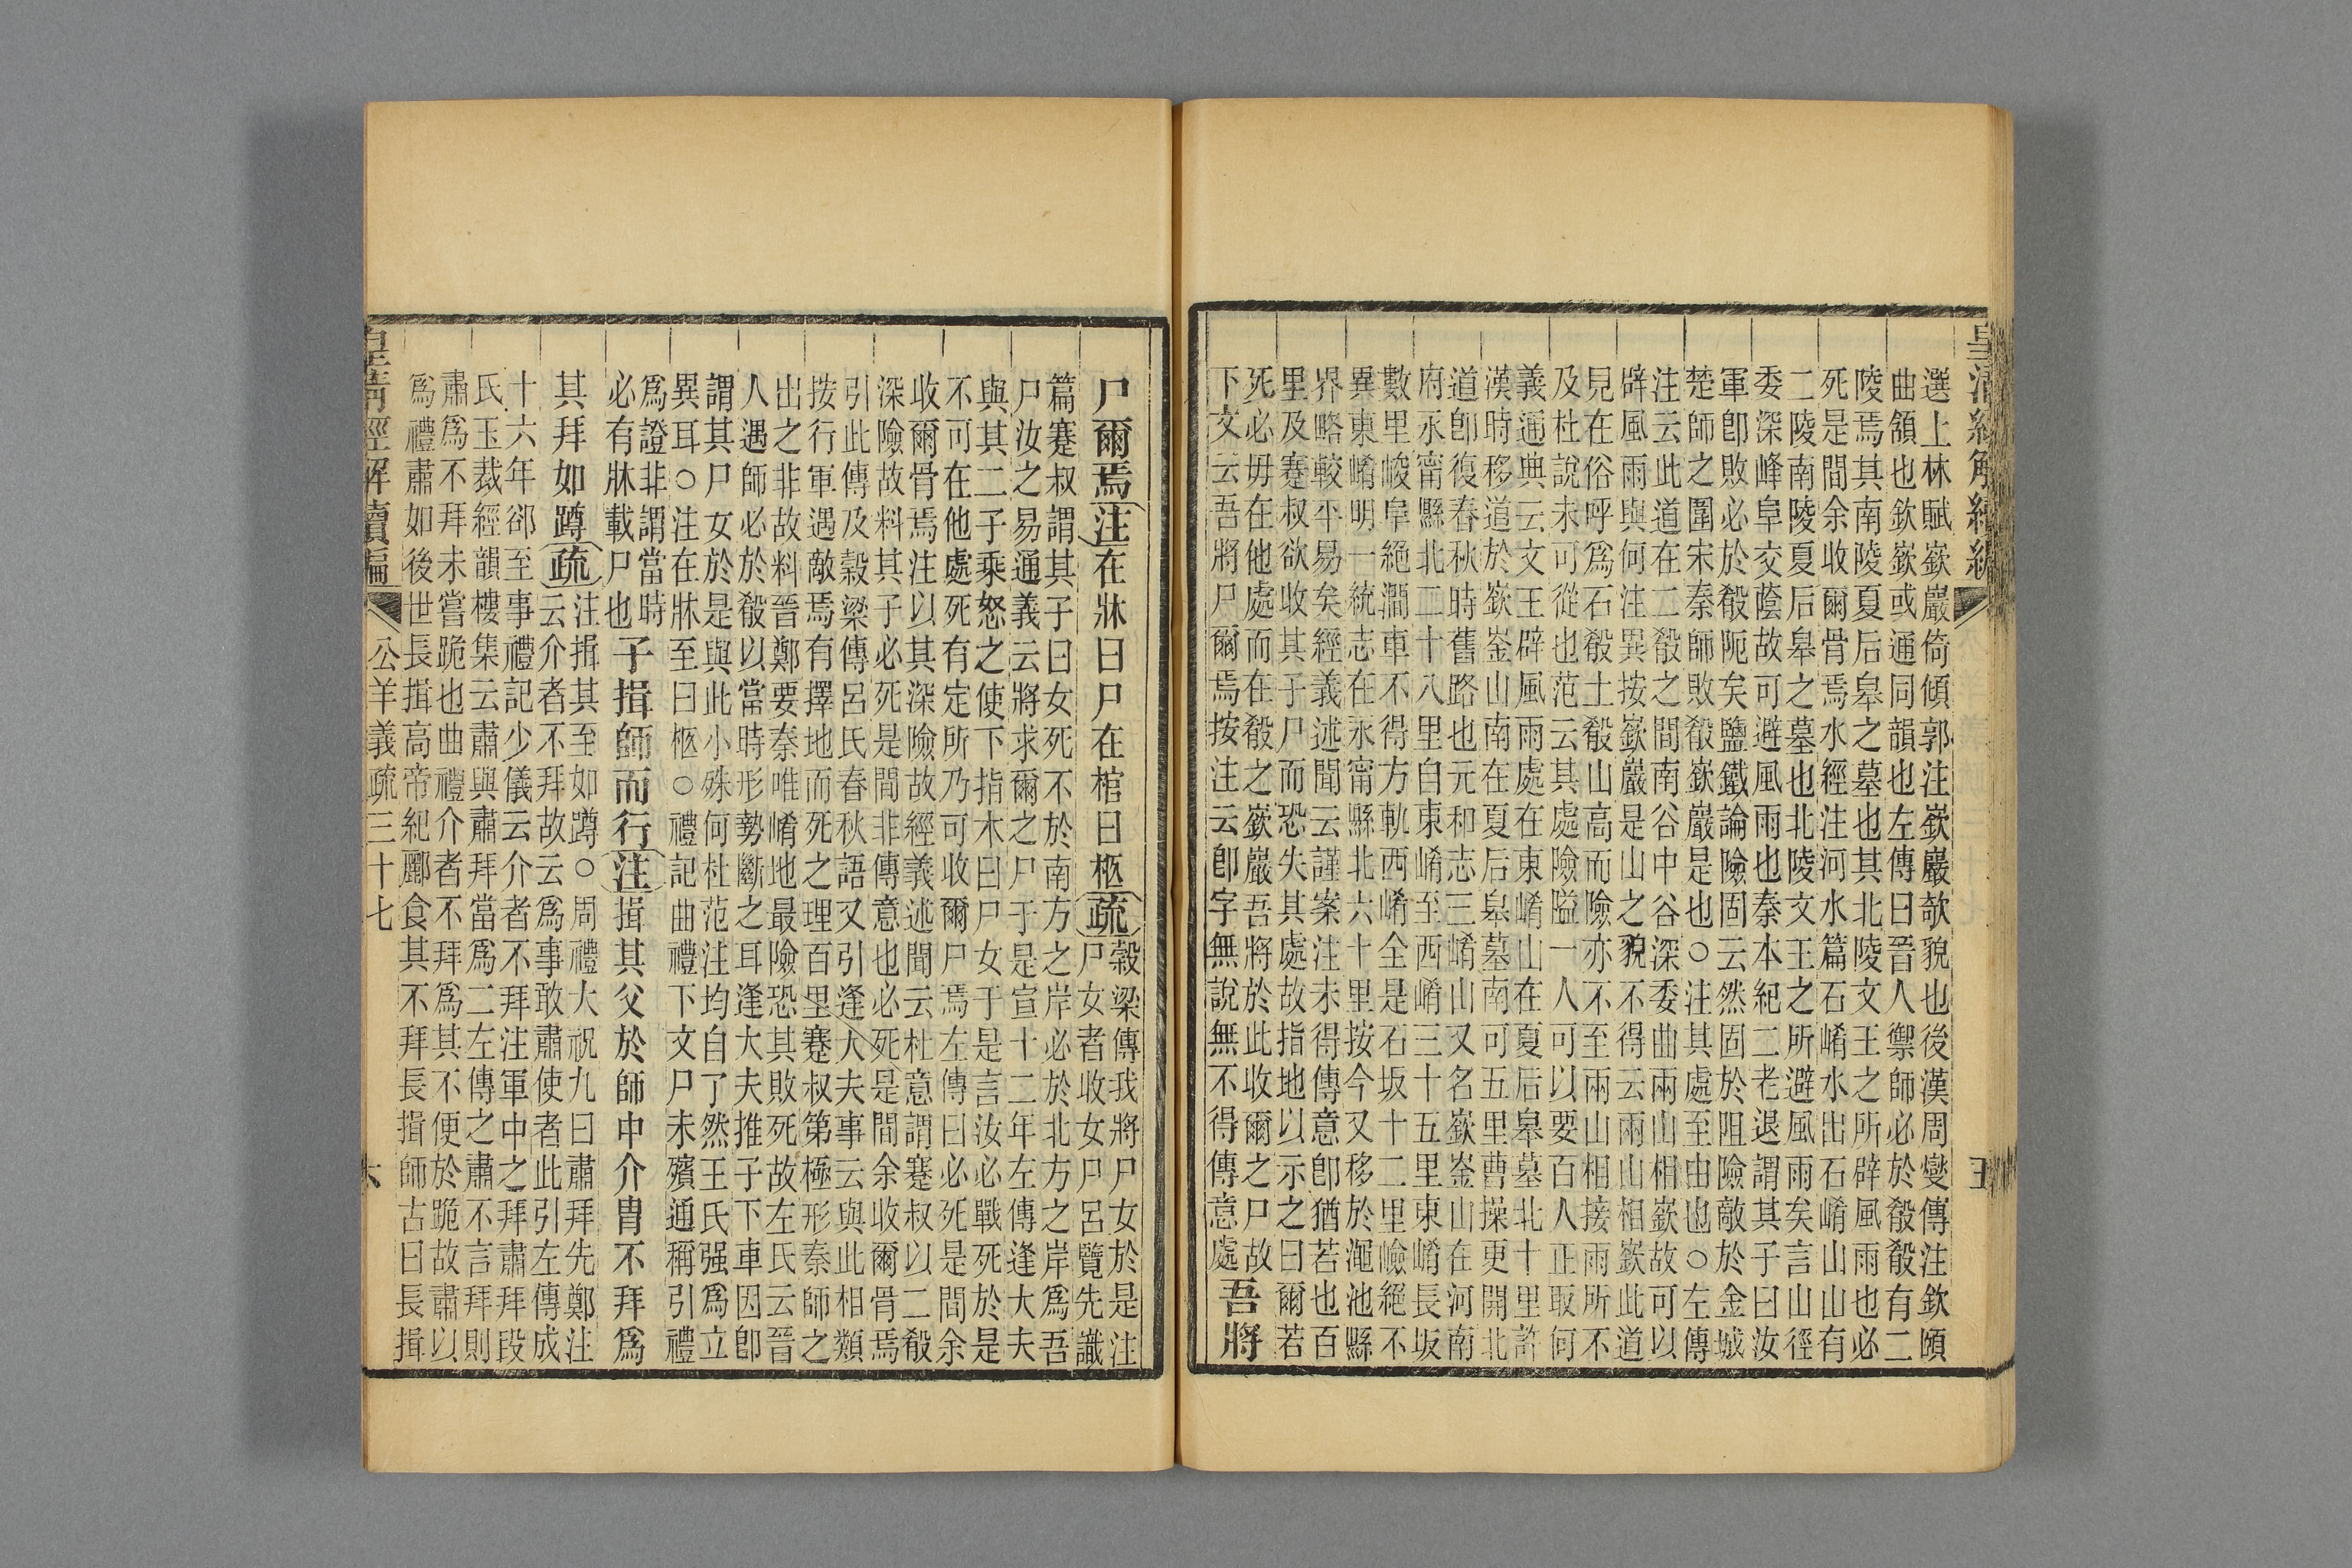 皇清經解續編
選上林賦嶔巖倚傾郭注嶔巖欹貌也後漢周燮傳注欽頤
曲頷也欽嶔或通同韻也左傳曰晉人禦師必於殽殽有二
陵焉其南陵夏后皋之墓也其北陵文王之所辟風雨也必
死是間余收爾骨焉水經注河水篇石崤水出石崤山山有
二陵南陵夏后皋之墓也北陵文王之所避風雨矣言山徑
委深峰阜交蔭故可避風雨也秦本紀二老退謂其子曰汝
軍卽敗必於殽阨矣鹽鐵論險固云然固於阻險敵於金城
楚師之圍宋秦師敗殽嶔巖是也○注其處至由也○左傳
注云此道在二殽之間南谷中谷深委曲兩山相嶔故可以
辟風雨與何注異按嶔巖是山之貌不得云兩山相嶔此道
見在俗呼爲石殽土殽山高而險亦不至兩山相接雨所不
及杜說未可從也范云其處險隘一人可以要百人正取何
義通典云文王辟風雨處在東崤山在夏后皋墓北十里許
漢時移道於嶔崟山南在夏后皋墓南可五里曹操更開北
道卽復春秋時舊路也元和志三崤山又名嶔崟山在河南
府永甯縣北二十八里自東崤至西崤三十五里東崤長坂
數里峻阜絕澗車不得方軌西崤全是石坂十二里嶮絕不
異東崤明一統志在永甯縣北六十里按今又移於澠池縣
界略較平易矣經義述聞云謹案注未得傳意卽猶若也百
里及蹇叔欲收其子尸而恐失其處故指地以示之曰爾若
死必毋在他處而在殽之嶔巖吾將於此收爾之尸故
下文云吾將尸爾焉按注云卽字無說無不得傳意處
吾將
尸爾焉注在牀曰尸在棺曰柩疏
穀梁傳我將尸女於是注
尸女者收女尸呂覽先識
篇蹇叔謂其子曰女死不於南方之岸必於北方之岸爲吾
尸汝之易通義云將求爾之尸于是宣十二年左傳逢大夫
與其二子乘怒之使下指木曰尸女于是言汝必戰死於是
不可在他處死有定所乃可收爾尸焉左傳曰必死是間余
收爾骨焉注以其深險故經義述聞云杜意謂蹇叔以二殽
深險故料其子必死是間非傳意也必死是間余收爾骨焉
引此傳及穀梁傳呂氏春秋語又引逢大夫事云與此相類
按行軍遇敵焉有擇地而死之理百里蹇叔第極形秦師之
出之非故料晉鄭要秦唯崤地最險恐其敗死故左氏云晉
人遇師必於殽以當時形勢斷之耳逢大夫推子下車因卽
謂其尸女於是與此小殊何杜范注均自了然王氏强爲立
異耳○注在牀至曰柩○禮記曲禮下文尸未殯通稱引禮
爲證非謂當時
必有牀載尸也
子揖師而行注揖其父於師中介胄不拜爲
其拜如蹲疏
注揖其至如蹲○周禮大祝九曰肅拜先鄭注
云介者不拜故云爲事敢肅使者此引左傳成
十六年郤至事禮記少儀云介者不拜注軍中之拜肅拜段
氏玉裁經韻樓集云肅與肅拜當爲二左傳之肅不言拜則
肅爲不拜未嘗跪也曲禮介者不拜爲其不便於跪故肅以
爲禮肅如後世長揖高帝紀酈食其不拜長揖師古曰長揖
皇清經解續編
公羊義疏三十七
六